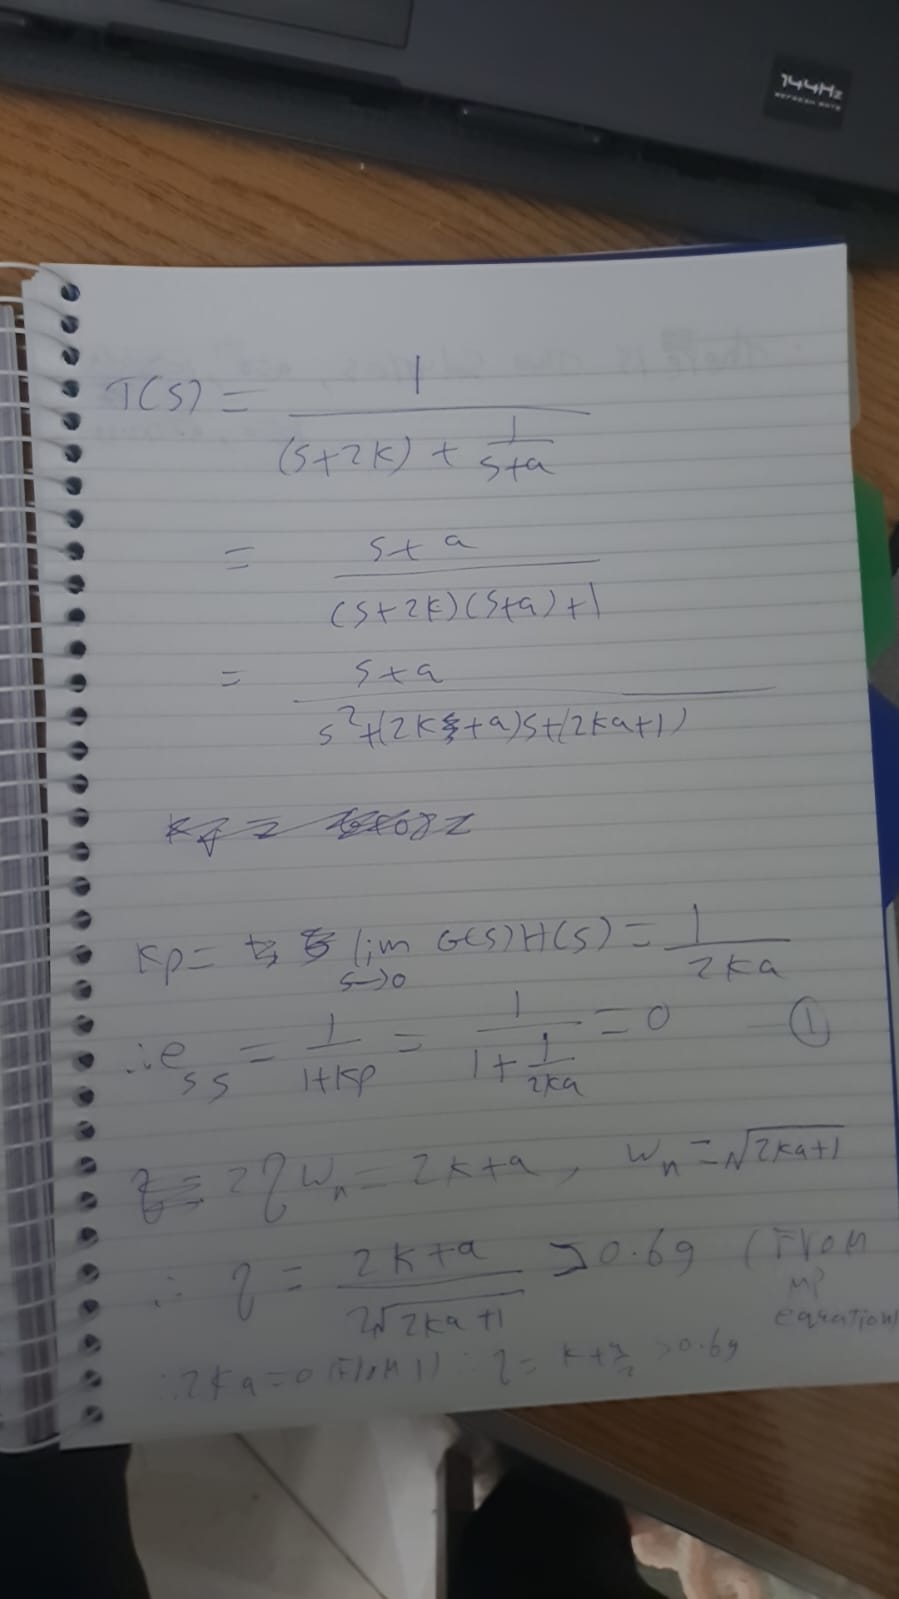 144Hz
REFRESH RATE
T(s) = 1 / ((s+2k) + 1/(s+a))
= (s+a) / ((s+2k)(s+a)+1)
= (s+a) / (s²+(2k+a)s+(2ka+1))
Kp = lim s→0 G(s)H(s) = 1/(2ka)
∴ e ss = 1/(1+Kp) = 1/(1+1/(2ka)) = 0 ①
2ξWn = 2k+a , Wn = √(2ka+1)
∴ ξ = (2k+a) / (2√(2ka+1)) > 0.69 (From MP equation)
∵ 2ka=0 (From 1) ∴ ξ = k+a/2 >0.69